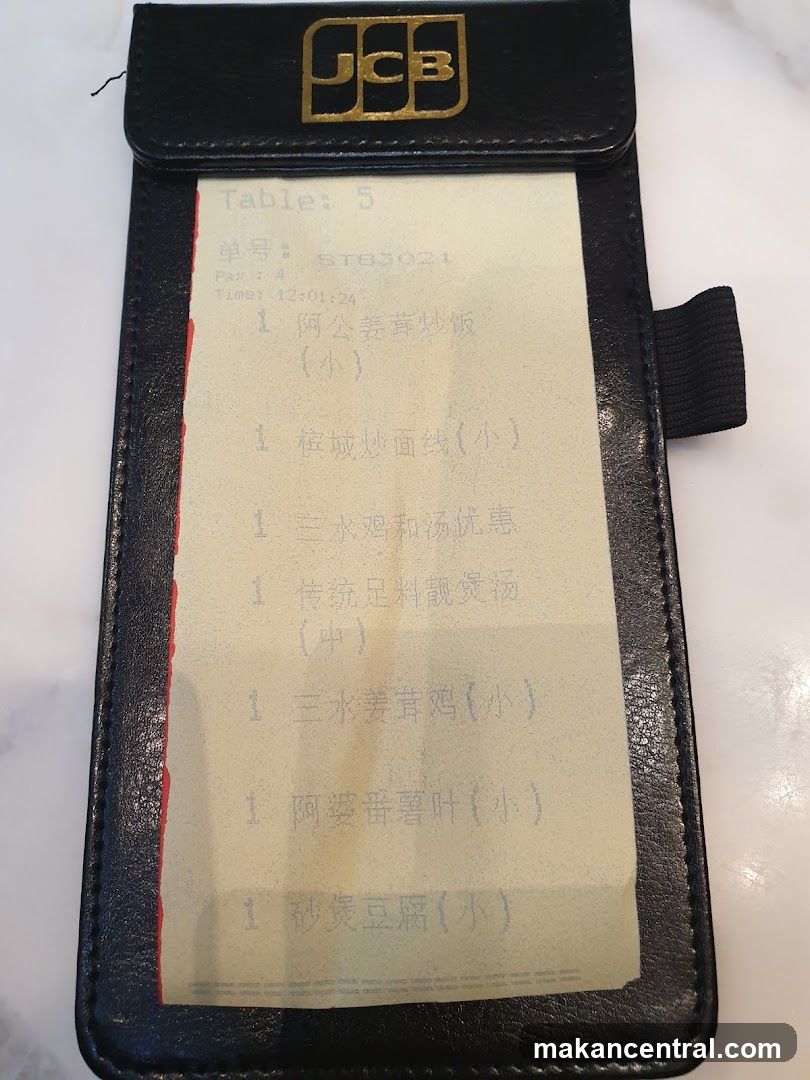 JCB
Table: 5
单号: ST83021
Pax : 4
Time: 12:01:24
1 阿公姜茸炒饭
(小)
1 槟城炒面线(小)
1 三水鸡和汤优惠
1 传统足料靓煲汤
(中)
1 三水姜茸鸡(小)
1 阿婆番薯叶(小)
1 砂煲豆腐(小)
makancentral.com